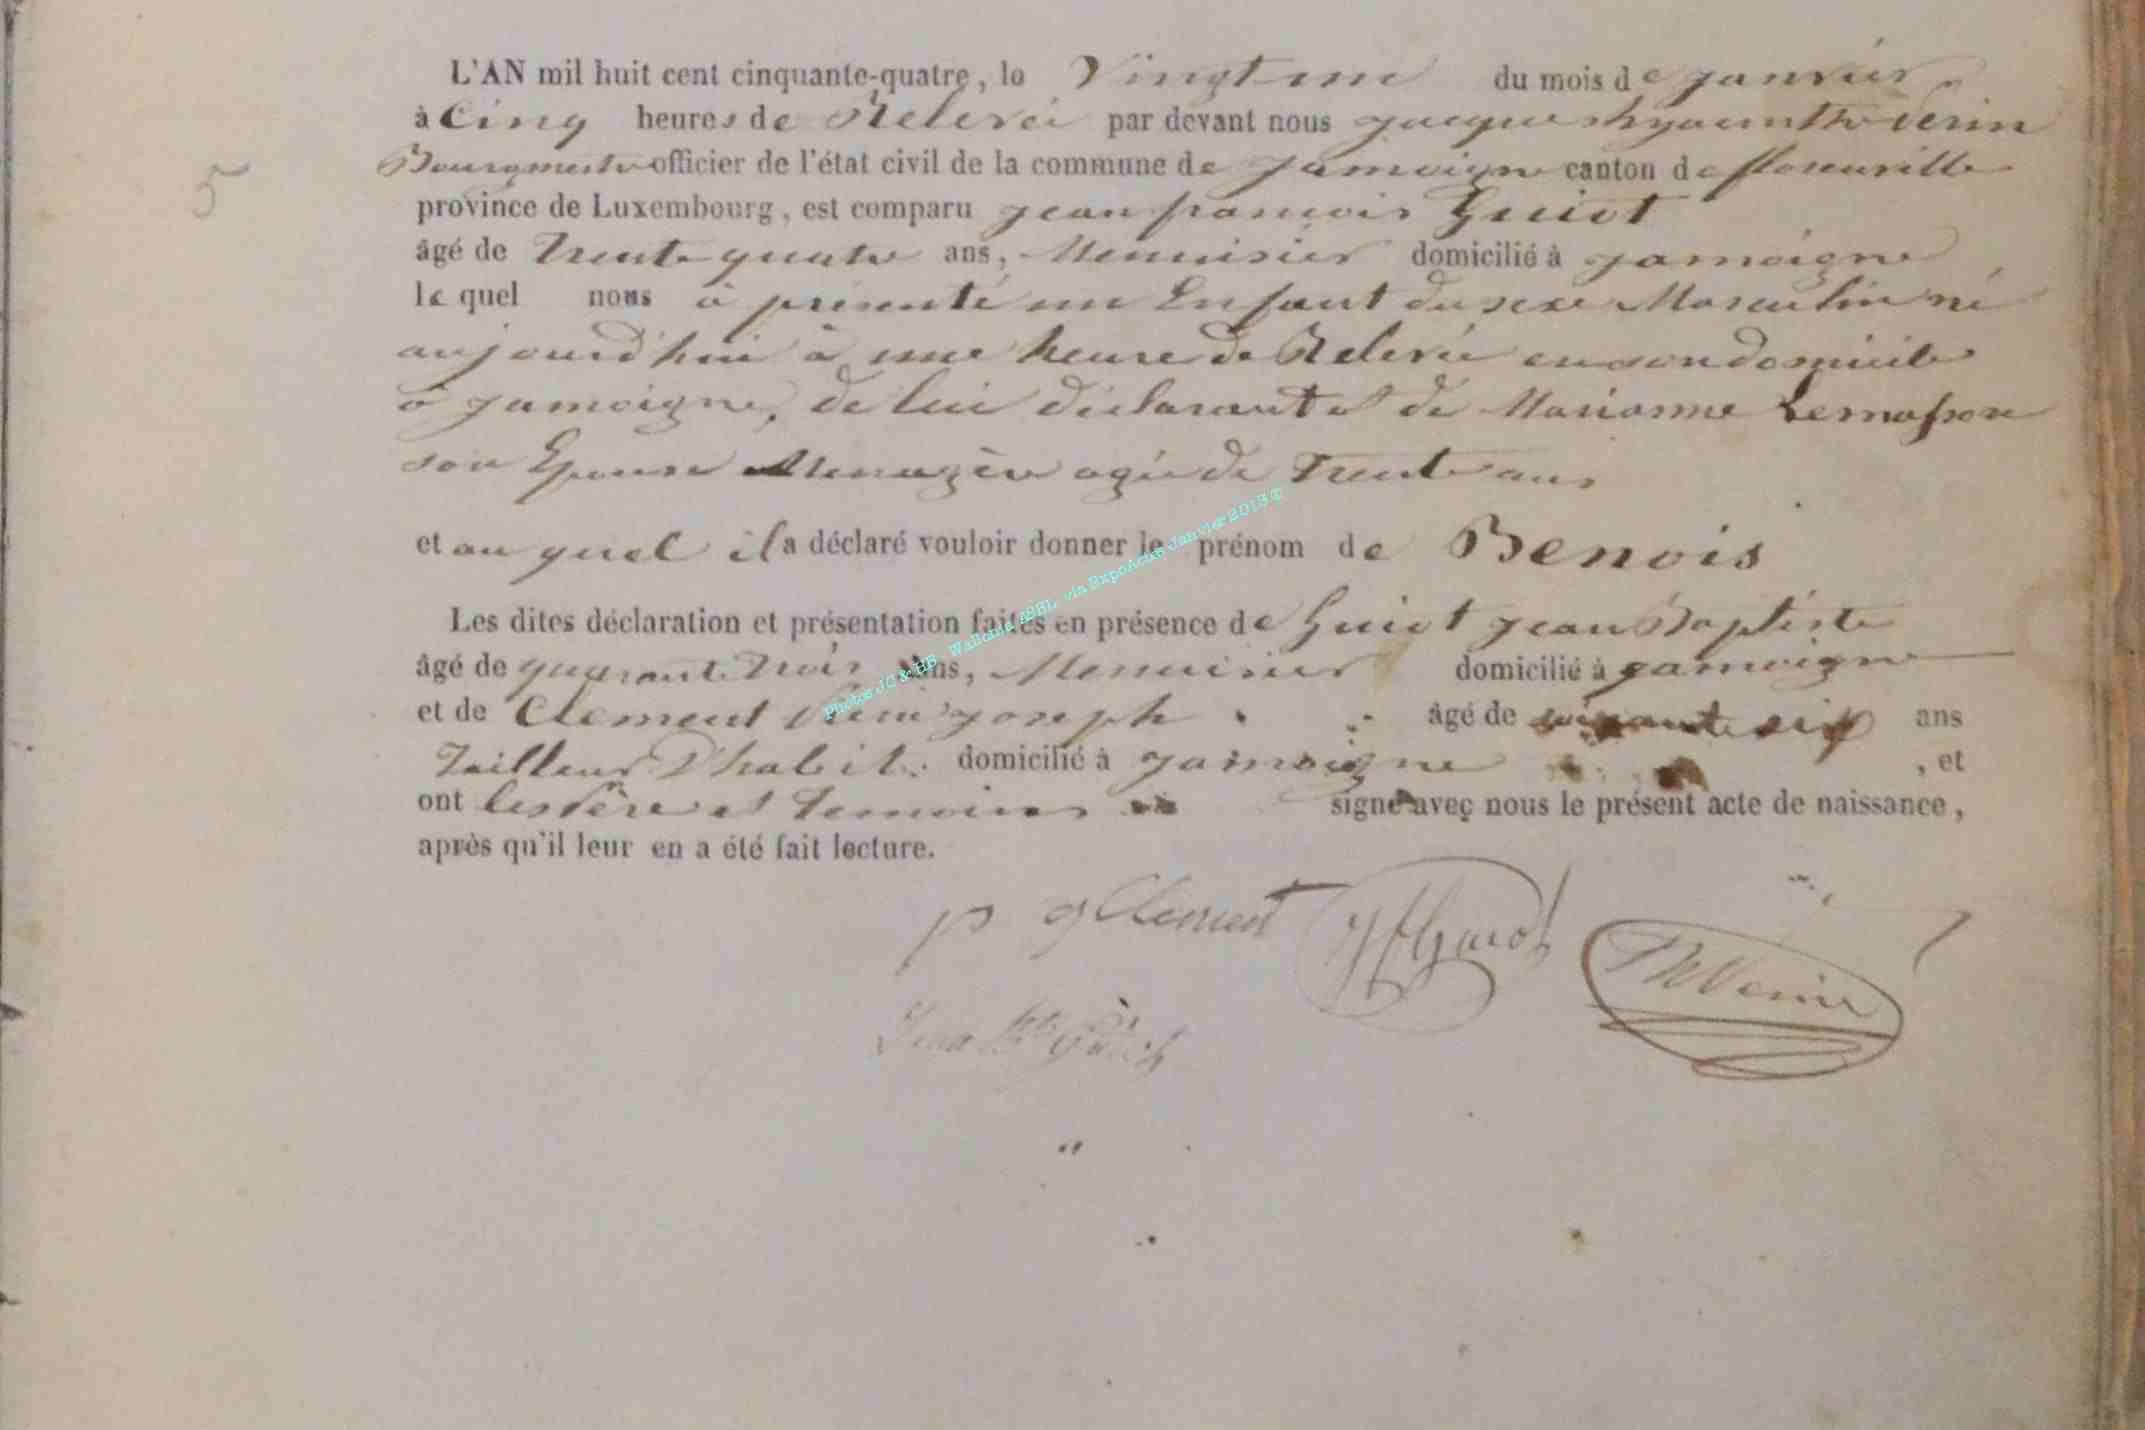 L'AN mil huit cent cinquante-quatre, le Vingt un du mois de janvier
à Cinq heures de Relevée par devant nous jacques hyacinthe Verin
Bourgmestre officier de l'état civil de la commune de jamoigne canton de florenville
5
province de Luxembourg, est comparu jean françois Guiot
âgé de Trente quatre ans, Menuisier domicilié à jamoigne
le quel nous à présenté un Enfant du sexe Masculin né
aujourd'hui à une heure de Relevée en son domicile
à jamoigne, de lui déclarant et de Marianne Lemasson
son Epouse Menagère agée de Trente ans
et au quel il a déclaré vouloir donner le prénom de Benois
Les dites déclaration et présentation faites en présence de Guiot jean Baptiste
âgé de quarante trois ans, Menuisier domicilié à jamoigne
et de Clement joseph âgé de soixante six ans
Tailleur d'habit domicilié à jamoigne , et
ont les père et temoins signé avec nous le présent acte de naissance,
après qu'il leur en a été fait lecture.
p j Clement JF Guiot Verin
Jean Bte Guiot
Photos JC & HB. Wallonia ASBL. via ExpoActes Janvier 2013 ©